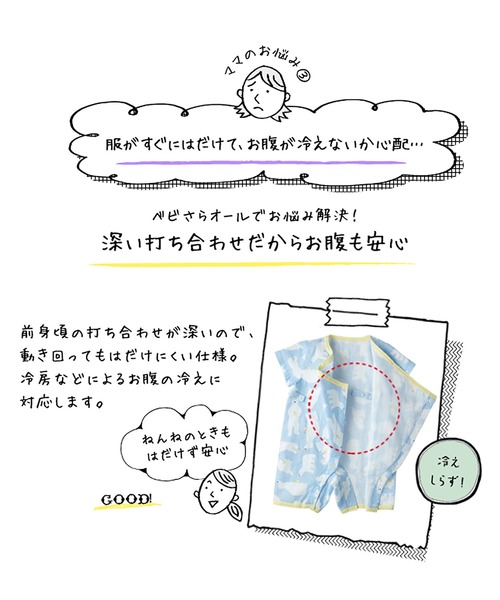 ママのお悩み③
服がすぐにはだけて、お腹が冷えないか心配…
ベビさらオールでお悩み解決！
深い打ち合わせだからお腹も安心
前身頃の打ち合わせが深いので、
動き回ってもはだけにくい仕様。
冷房などによるお腹の冷えに
対応します。
ねんねのときも
はだけず安心
GOOD!
冷え
しらず！